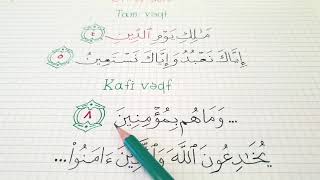 Tam vəqf
مَـٰلِكِ يَوْمِ ٱلدِّينِ ٤
إِيَّاكَ نَعْبُدُ وَإِيَّاكَ نَسْتَعِينُ ٥
Kafi vəqf
... وَمَا هُم بِمُؤْمِنِينَ ٨
يُخَـٰدِعُونَ ٱللَّهَ وَٱلَّذِينَ ءَامَنُوا۟ ...